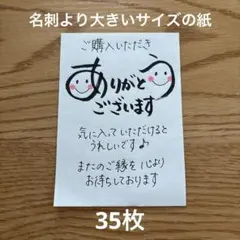 名刺より大きいサイズの紙
ご購入いただき
ありがとう
ございます
気に入っていただけると
うれしいです♪
またのご縁を心より
お待ちしております
35枚